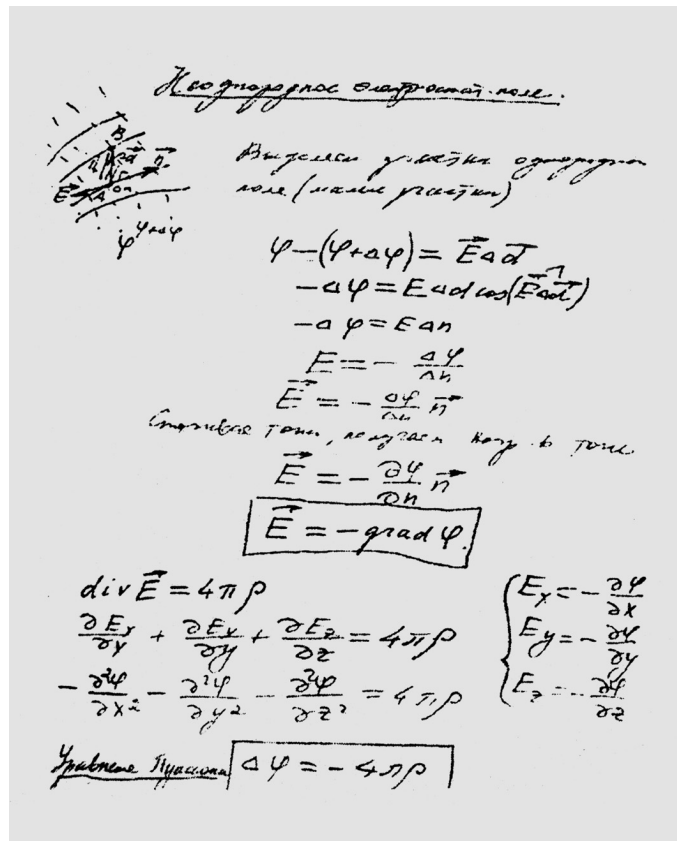 Неоднородное электростат. поле.
B
E⃗ A Δn
φ φ+Δφ
Выделяем участки однородн
поле (малые участки)
φ−(φ+Δφ) = E⃗Δd⃗
−Δφ = EΔd cos(E⃗^Δd⃗)
−Δφ = EΔn
E = − Δφ/Δn
E⃗ = − Δφ/Δn n⃗
Стягивая точки, получаем в точке
E⃗ = − ∂φ/∂n n⃗
E⃗ = − grad φ.
div E⃗ = 4πρ
∂Ex/∂x + ∂Ey/∂y + ∂Ez/∂z = 4πρ
− ∂²φ/∂x² − ∂²φ/∂y² − ∂²φ/∂z² = 4πρ
Ex = − ∂φ/∂x
Ey = − ∂φ/∂y
Ez = − ∂φ/∂z
Уравнение Пуассона Δφ = − 4πρ